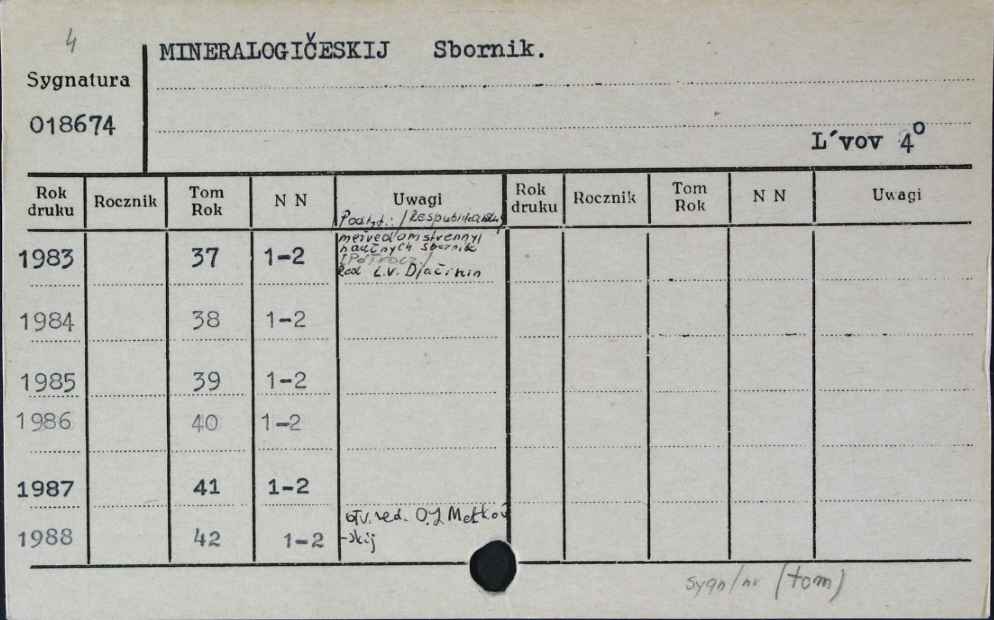 4
MINERALOGIČESKIJ Sbornik.
Sygnatura
018674
L'vov 4°
Rok druku Rocznik Tom Rok N N Uwagi Rok druku Rocznik Tom Rok N N Uwagi
naučnych sbornik
Red L.V.
1983 37 1-2
1984 38 1-2
1985 39 1-2
1986 40 1-2
1987 41 1-2
otv. red. O.J. Matkov
-skij
1988 42 1-2
sygn/nr (tom)